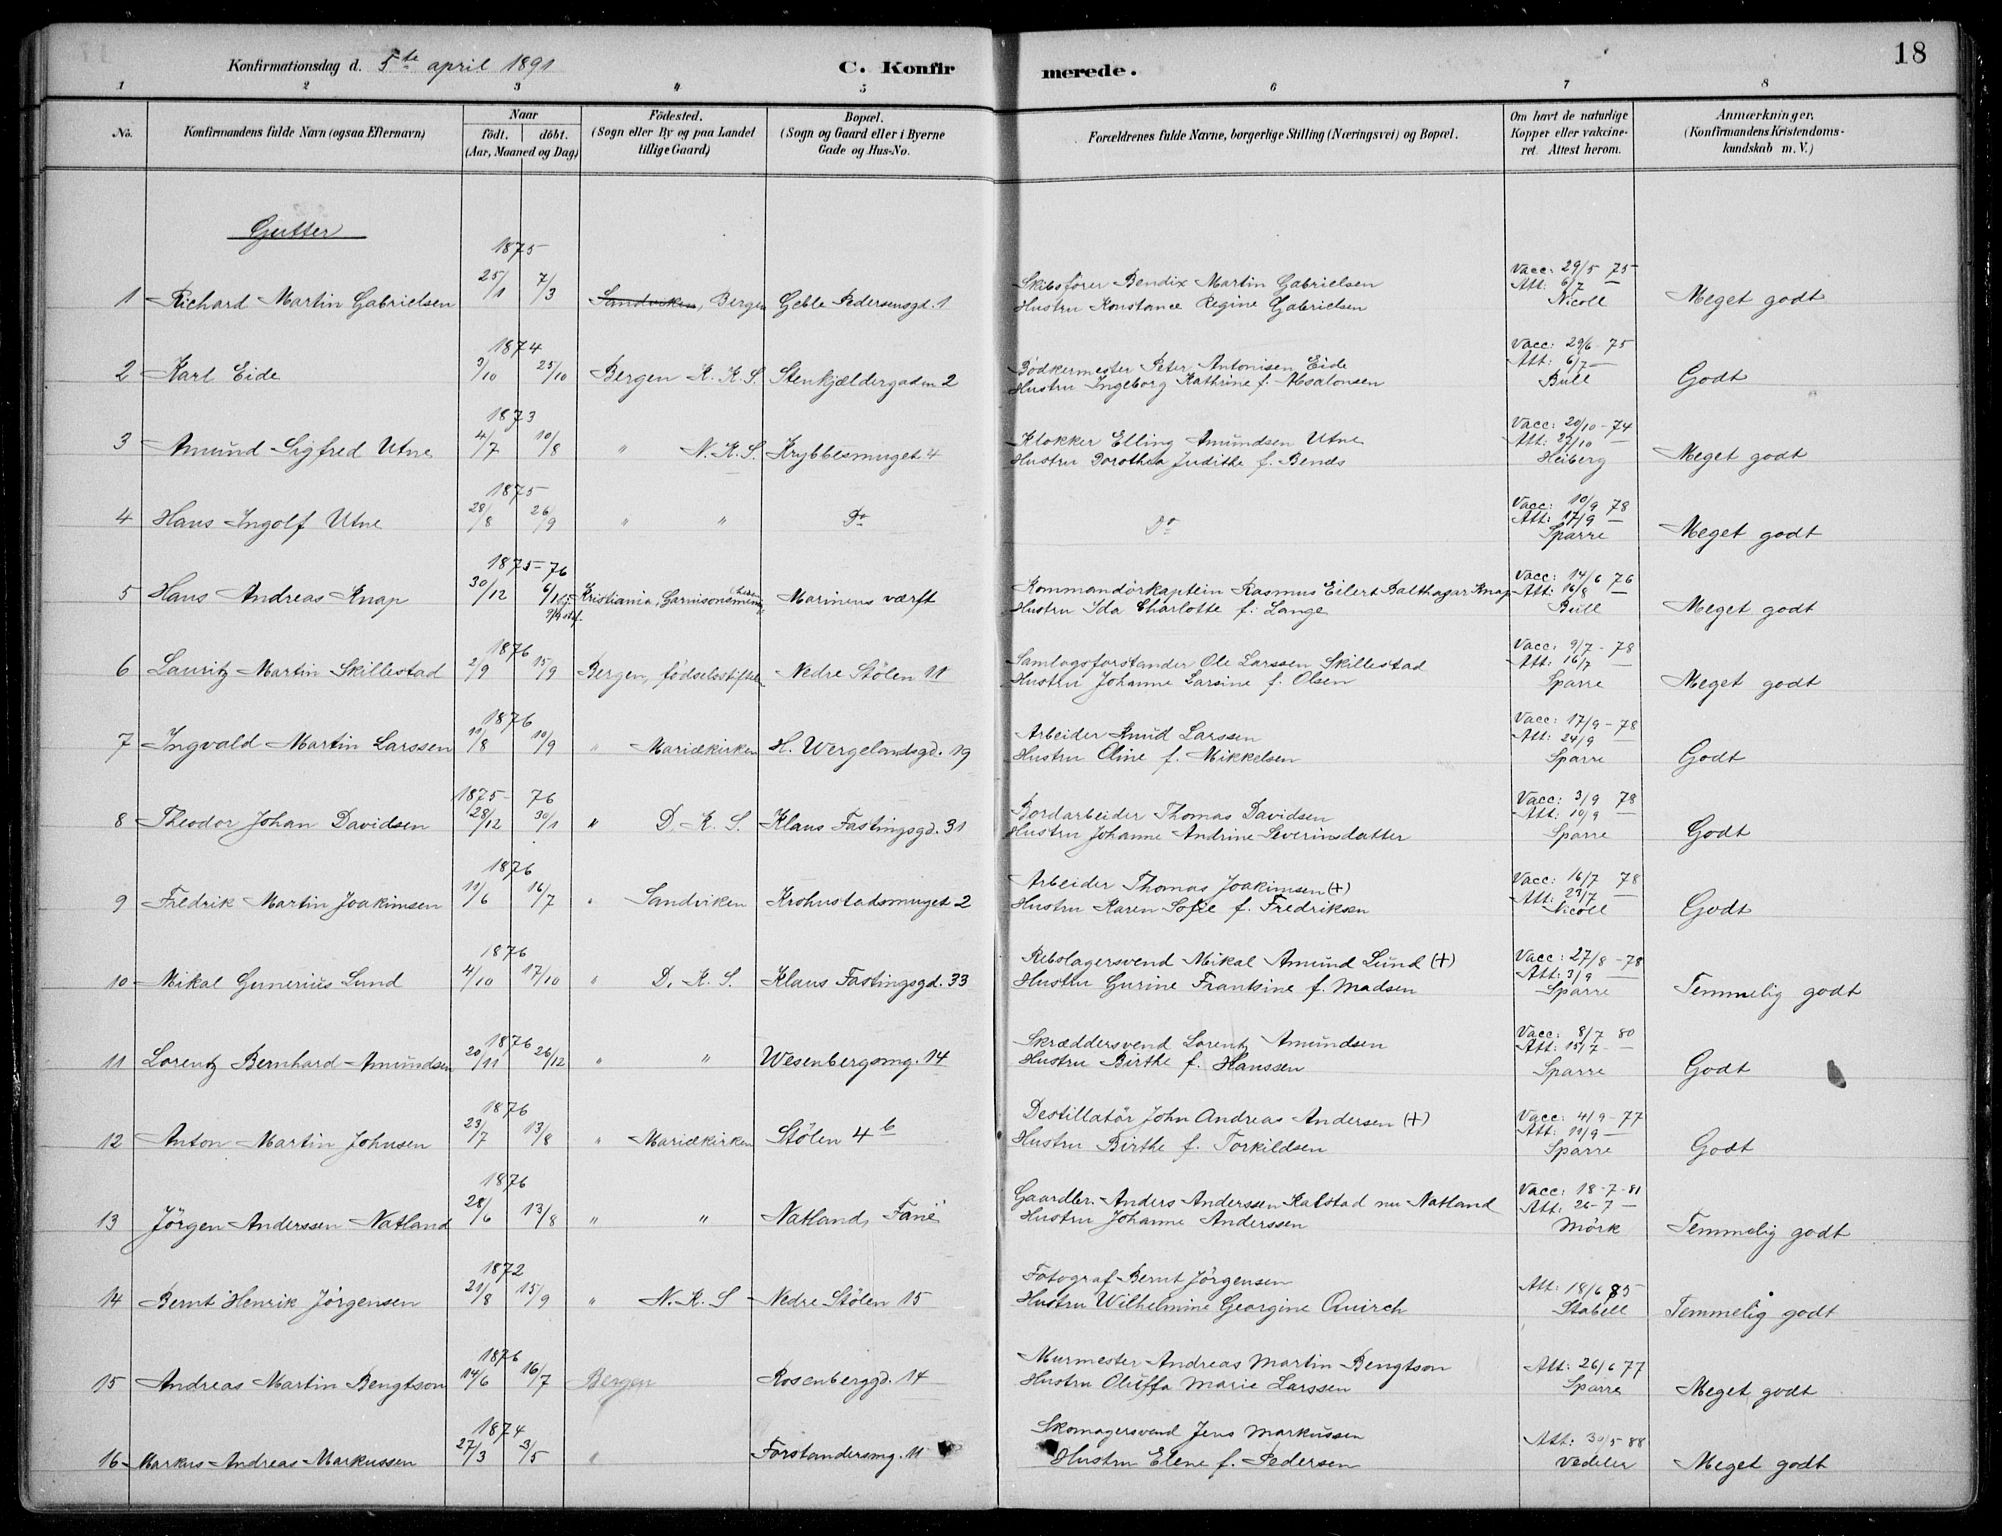 18
Konfirmationsdag d. 5te april 1891 C. Konfirmerede.
1 2 3 4 5 6 7 8
No. Konfirmandens fulde Navn (ogsaa Efternavn) Naar født. døbt. (Aar, Maaned og Dag) Fødested. (Sogn eller By og paa Landet tillige Gaard) Bopæl. (Sogn og Gaard eller i Byerne Gade og Hus-No. Forældrenes fulde Navne, borgerlige Stilling (Næringsvei) og Bopæl. Om havt de naturlige Kopper eller vakcineret. Attest herom. Anmærkninger. (Konfirmandens Kristendomskundskab m. V.)
Gutter
1875
1 Richard Martin Gabrielsen 25/1 7/3 Sandviken, Bergen Geble Pedersensgd. 1 Skibsfører Bendix Martin Gabrielsen Vacc: 29/5 75
Hustru Konstance Regine Gabrielsen Att: 6/7 — Nicoll Meget godt
1874
2 Karl Eide 9/10 25/10 Bergen K. K. S. Stenkjældergaden 2 Bødkermester Peter Antonisen Eide Vacc: 29/6 - 75
Hustru Ingeborg Kathrine f. Absalonsen Att: 6/7 — Bull Godt
1873
3 Amund Sigfred Utne 4/7 10/8 " N. K. S. Krybbesmuget 4 Klokker Elling Amundsen Utne Vacc: 20/10 - 74
Hustru Dorothea Judithe f. Bends Att: 27/10 — Heiberg Meget godt
1875
4 Hans Ingolf Utne 28/8 26/9 " " Do Do Vacc: 10/9 78
Att: 17/9 — Sparre Meget godt
1875-76
5 Hans Andreas Knap 30/12 6/1 Kristiania, Garnisonsmenigheden Marinens værft Kommandørkaptein Rasmus Eilert Balthazar Knap Vacc: 14/6 76
Hustru Ida Charlotte f. Lange Att: 16/8 — Bull Meget godt
1876
6 Lauritz Martin Skillestad 2/9 15/9 Bergen, fødselsstiftel. Nedre Stølen 11 Samlagsforstander Ole Larssen Skillestad Vacc: 9/7 - 78
Hustru Johanne Larsine f. Olsen Att: 16/7 — Sparre Meget godt
1876
7 Ingvald Martin Larssen 11/8 10/9 " Mariækirken H. Wergelandsgd. 19 Arbeider Knud Larssen Vacc: 17/9 - 78
Hustru Oline f. Mikkelsen Att: 24/9 — Sparre Godt
1875- 76
8 Theodor Johan Davidsen 28/12 30/1 " D. K. S. Klaus Fastingsgd. 31 Bordarbeider Thomas Davidsen Vacc: 3/9 78
Hustru Johanne Andrine Severinsdatter Att: 10/9 — Sparre Godt
1876
9 Fredrik Martin Joakimsen 11/6 16/7 " Sandviken Krohnstadsmuget 2 Arbeider Thomas Joakimsen (+) Vacc: 16/7 78
Hustru Karen Sofie f. Fredriksen Att: 23/7 — Nicoll Godt
1876
10 Mikal Gunerius Lund 4/10 17/10 " D. K. S. Klaus Fastingsgd. 33 Rebslagersvend Mikal Amund Lund (+) Vacc: 27/8 - 78
Hustru Gurine Frantsine f. Madsen Att: 3/9 — Sparre Temmelig godt
1876
11 Lorentz Bernhard Amundsen 20/11 26/12 " " Wesenbergsmg. 14 Skræddersvend Lorentz Amundsen Vacc: 8/7 80
Hustru Birthe f. Hanssen Att: 15/7 — Sparre Godt
1876
12 Anton Martin Johnsen 23/7 13/8 " Mariækirken Stølen 4 b Destillatør John Andreas Andersen (+) Vacc: 4/9 - 77
Hustru Birthe f. Torkildsen Att: 11/9 — Sparre Godt
1876
13 Jørgen Anderssen Natland 28/6 13/8 " " Natland, Fane Gaardbr. Anders Anderssen Kalstad nu Natland Vacc: 18-7-81
Hustru Johanne Anderssen Att: 26-7 — Mørk Temmelig godt
1872
14 Bernt Henrik Jørgensen 21/8 15/9 " N. K. S Nedre Stølen 15 Fotograf Bernt Jørgensen Att: 18/6 85
Hustru Wilhelmine Georgine Quirch Stabell Temmelig godt
1876
15 Andreas Martin Bengtson 14/6 16/7 Bergen Rosenberggd. 14 Murmester Andreas Martin Bengtson Att: 26/6 77
Hustru Oluffa Marie Larssen Sparre Meget godt
1874
16 Markus Andreas Markussen 27/3 3/5 " Forstandersmg. 11 Skomagersvend Jens Markussen Att: 30/5 88
Hustru Elene f. Pedersen Vedeler Meget godt